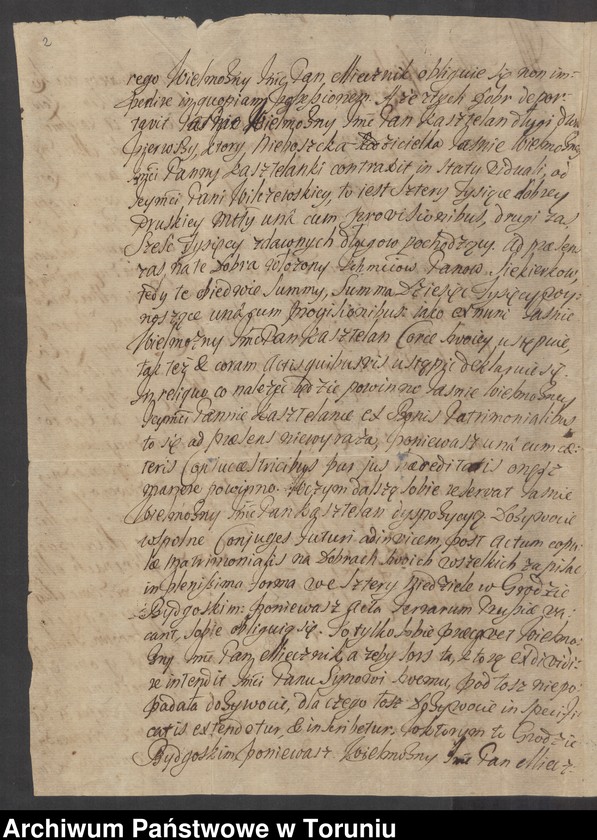 2
rego Wielmożny Jmć Pan Miecznik obliguie się non im-
pedire in quopiam possessionem. A że z tych Dobr depor-
tavit Jaśnie Wielmożny Jmć Pan Kasztelan długi dwa
pierwszy, ktory Nieboszczka Rodzicielka Jaśnie Wielmożney
Jmći Panny Kasztelanki contraxit in statu viduali, od
Jeymći Pani Wilxewskiey, to iest sztery Tysiące dobrey
Pruskiey Mtty una cum provisionibus, drugi zas
sześć Tysięcy z dawnych długow pochodzący, ad præsens
zas na te Dobra włożony Ichmciow Panow Siekierkow,
tedy te obiedwie Summy, Summa Dziesięć Tysięcy wy-
noszące una cum provisionibus iako ex nunc Jaśnie
Wielmożny Jmć Pan Kasztelan Corce swoiey ustępuie,
tak też & coram Actis quibusvis ustąpić deklaruie się.
In reliquo co należeć będzie powinno Jaśnie Wielmożney
Jeymći Pannie Kasztelance ex Bonis Patrimonialibus
to się ad præsens niewyraża, ponieważ una cum cæ-
teris Conjucæstricibus par jus hæreditatis
powinno. O czym dalszą sobie reservat Jaśnie
Wielmożny Jmć Pan Kasztelan dyspozycyą. Dożywocie
wspolne Conjuges futuri adinvicem post actum copu-
læ Matrimonialis na Dobrach swoich wszelkich zapisać
in plenissima forma we sztery Niedziele w Grodzie
Bydgoskim: ponieważ Acta Terrarum Prussiæ va-
cant, sobie obliguią się. To tylko sobie præcavet Wielmo-
żny Jmć Pan Miecznik, a żeby sors ta, ktorą ex dividi-
re intendit Jmći Panu Synowi swemu, pod tosz niepo-
padała dożywocie, dla czego tosz Dożywocie in specifi-
catis extendetur, & inscribetur. Po ktorym to Grodzie
Bydgoskim, ponieważ Wielmożny Jmć Pan Miecz-
Archiwum Państwowe w Toruniu